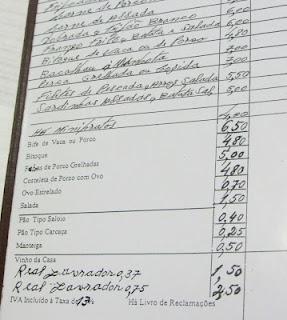 de Porco
Feijão Branco 5,00
Frango Frito, Batata e Salada 6,00
de Vaca ou de Porco 4,80
Bacalhau à Minhota 7,00
Grelhada ou Cozida 7,00
Filetes de Pescada, arroz Salada 5,50
Sardinhas Assadas, Batata Sal 5,00
Minipratos 4,00
Bife de Vaca ou Porco 6,50
Bitoque 4,80
Febras de Porco Grelhadas 5,00
Costeleta de Porco com Ovo 4,80
Ovo Estrelado 0,70
Salada 1,50
Pão Tipo Saloio 0,40
Pão Tipo Carcaça 0,25
Manteiga 0,50
Vinho da Casa
Real Lavrador 0,37 1,50
Real Lavrador 0,75 2,50
IVA Incluído à Taxa de 13% Há Livro de Reclamações